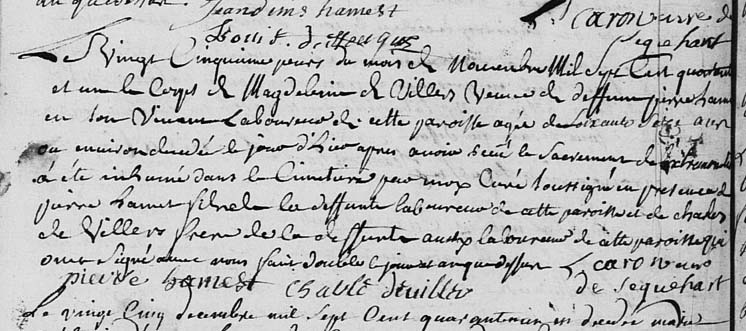 Jean denis hamest L. Caron curé de
Louis d. Sequehart
Le Vingt Cinquieme jours du mois de Novembre Mil Sept Cent quarente
et un le Corps de Magdeleine de Villers Veuve de deffunt pierre hamet
en son Vivant Laboureur de cette paroisse agée de soixante Seize ans
ou environ decedée le jour d'hier apres avoir reçu le Sacrement de
a été inhumé dans le Cimetiere par moy Curé soussigné en presence de
pierre hamet fils de la deffunte laboureur de cette paroisse et de charles
de Villers frere de la deffunte aussy laboureur de cette paroisse qui
ont signé avec nous fait double le jour et an que dessus L caron curé
pierre hamest Charle deviller de Sequehart
Le vingt Cinq decembre mil Sept Cent quarante un est decedé